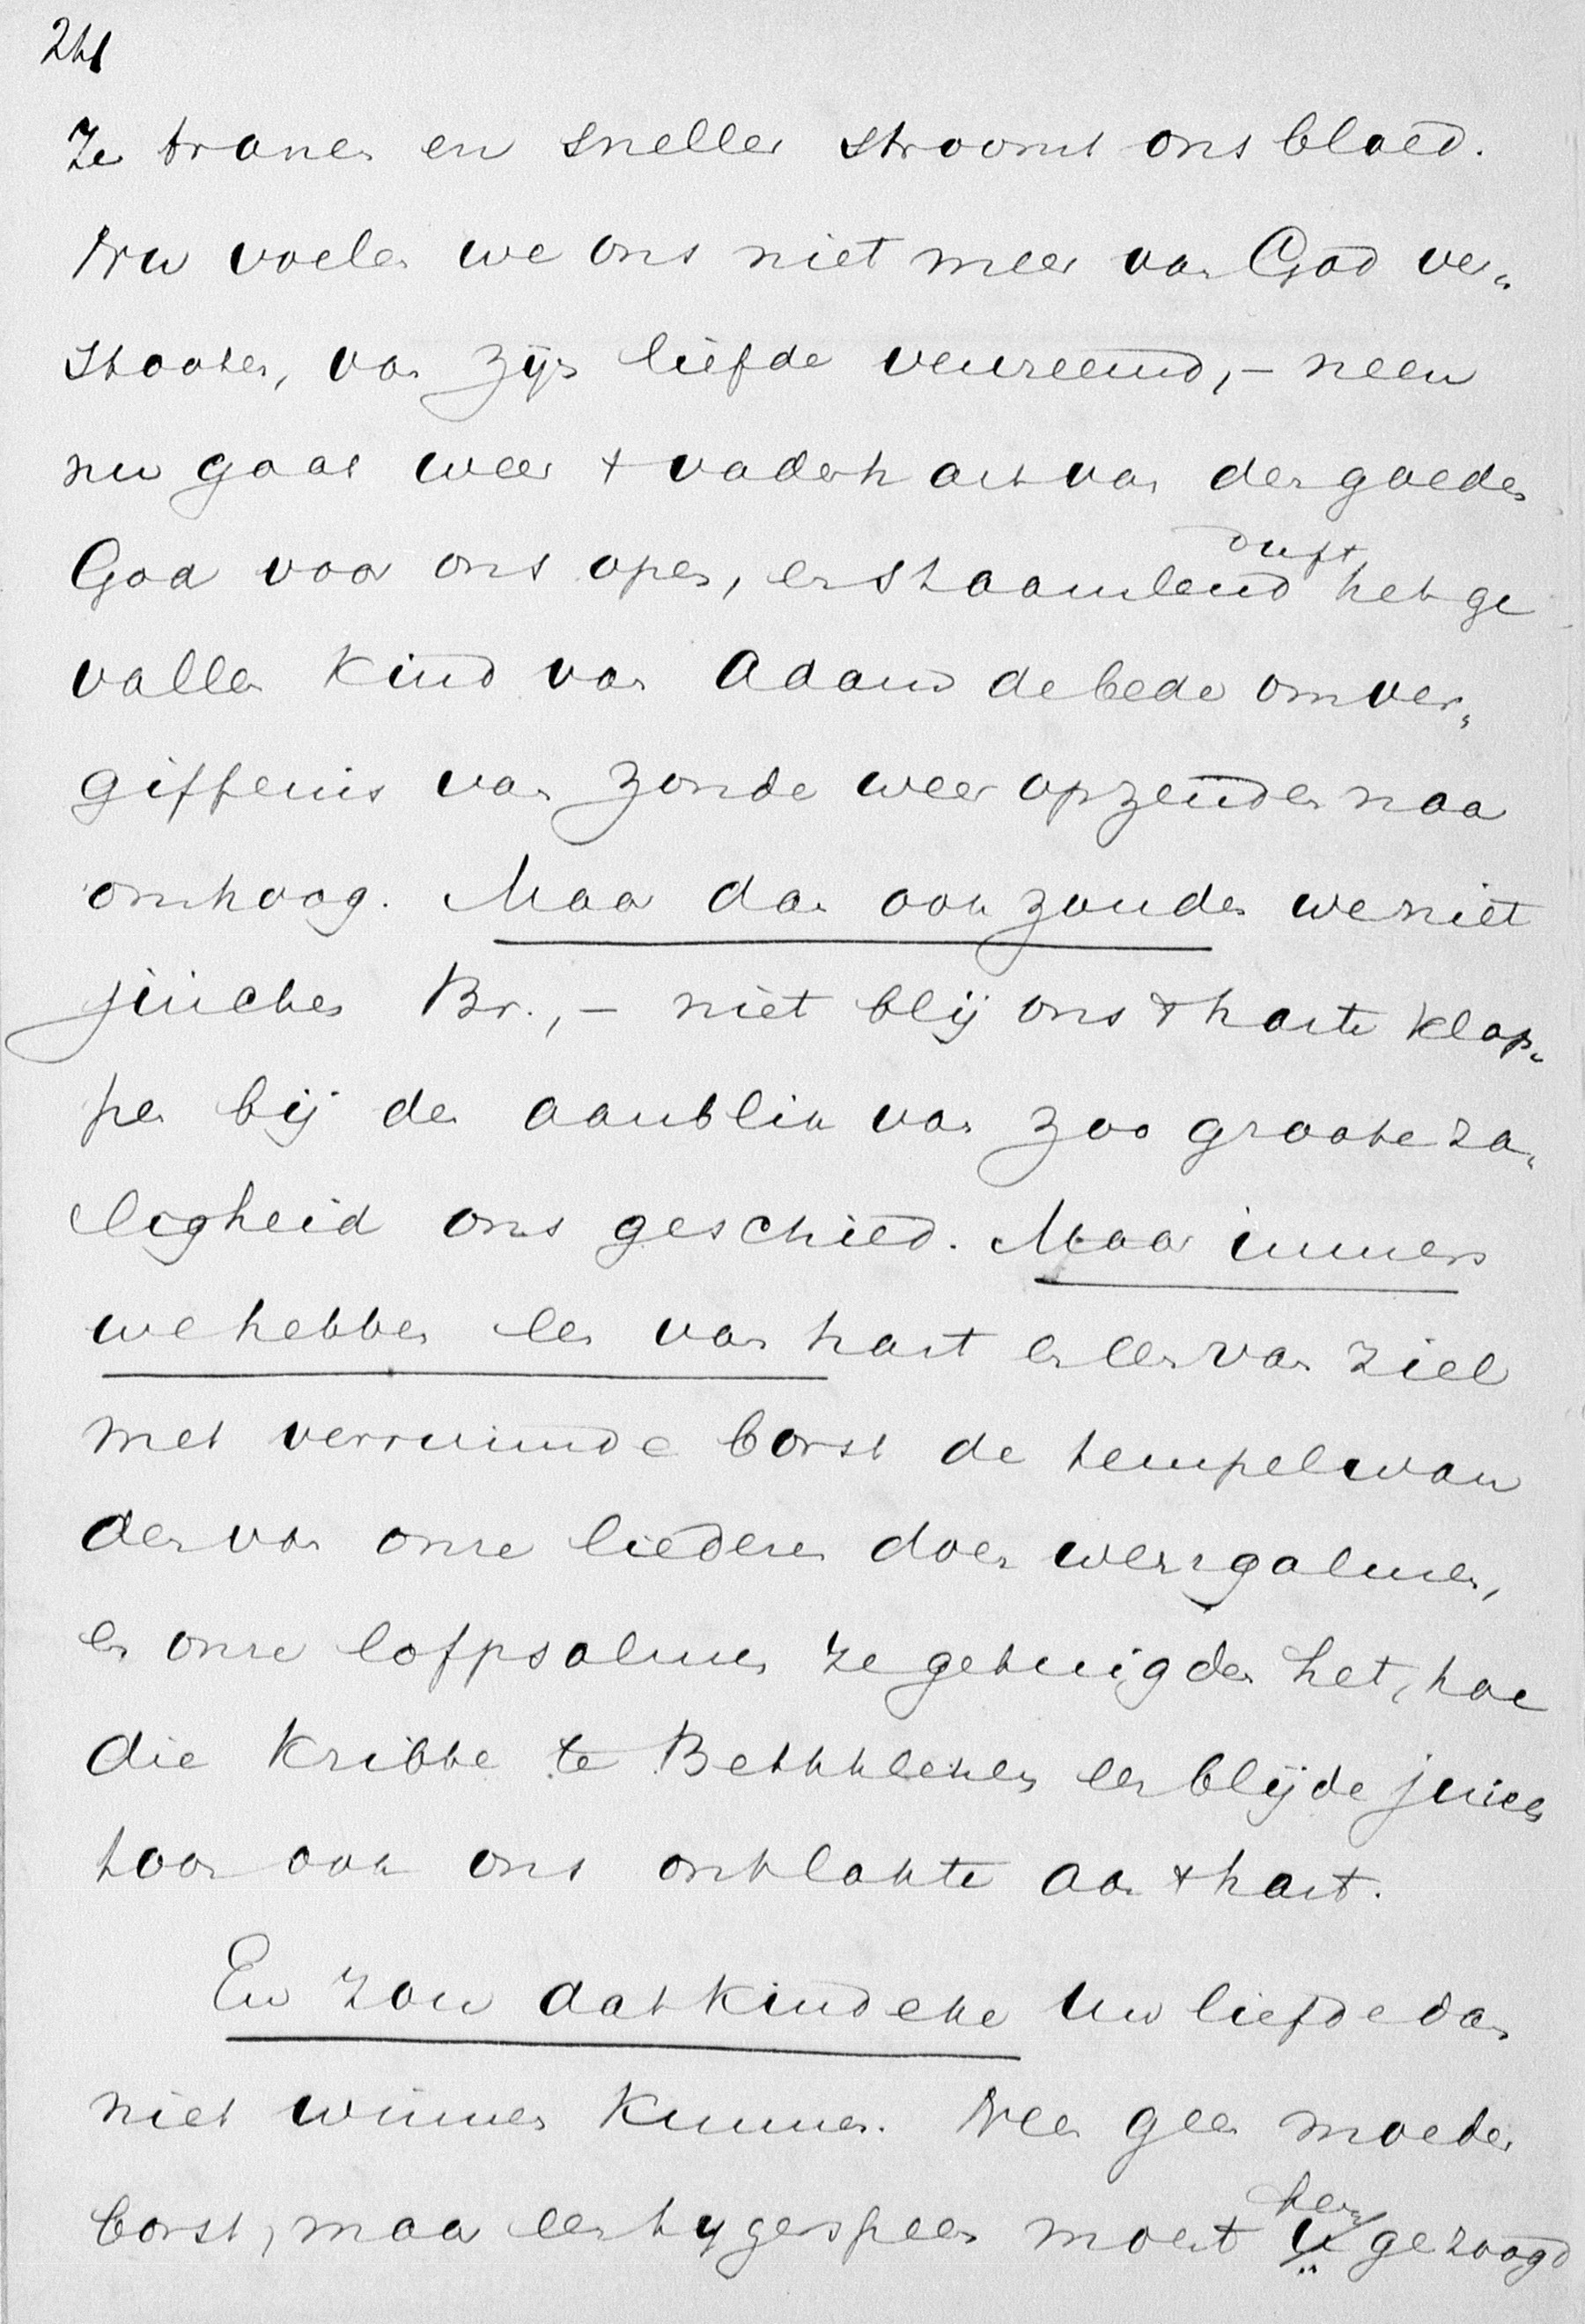 241
Ze tranen en sneller stroomt ons bloed.
Nu voelen we ons niet meer van God ver„
stooten, van zijn liefde vervreemd, – neen
nu gaat weer 't vaderhart van den goeden
God voor ons open, en staamlend durft het ge
vallen kind van Adam de bede om ver„
giffenis van zonde weer opzenden naar
omhoog. Maar dan ook zouden we niet
juichen Br., – niet blij ons 't harte klop„
pen bij den aanblik van zoo groote za„
ligheid ons geschied. Maar immers
we hebben een van hart en een van ziel
met verruimde borst de tempelwan
den van onze liederen doen weergalmen,
en onze lofpsalmen ze getuigden het, hoe
die kribbe te Bethlehem een blijde juich
toon ook ons ontlokte aan 't hart.
En zou dat kindeke Uw liefde dan
niet winnen kunnen. Neen geen moeder
borst, maar een tygerspeen moest hem u gezoogd